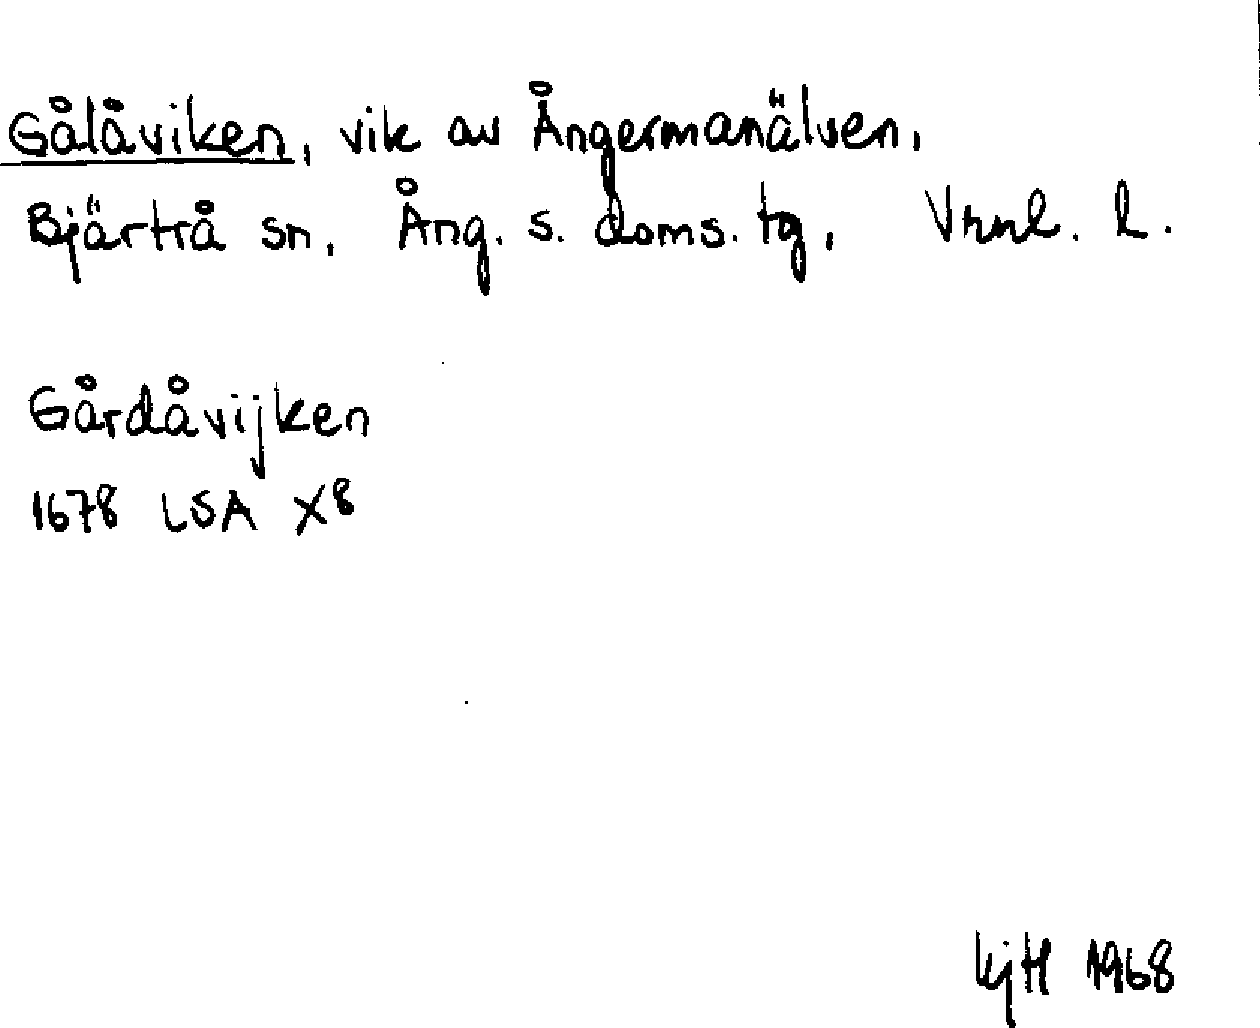 Gålåviken, vik av Ångermanälven,
Bjärtrå sn, Ång. s. doms. tg, Vrnl. l.
Gårdåvijken
1678 LSA X8
KjH 1968